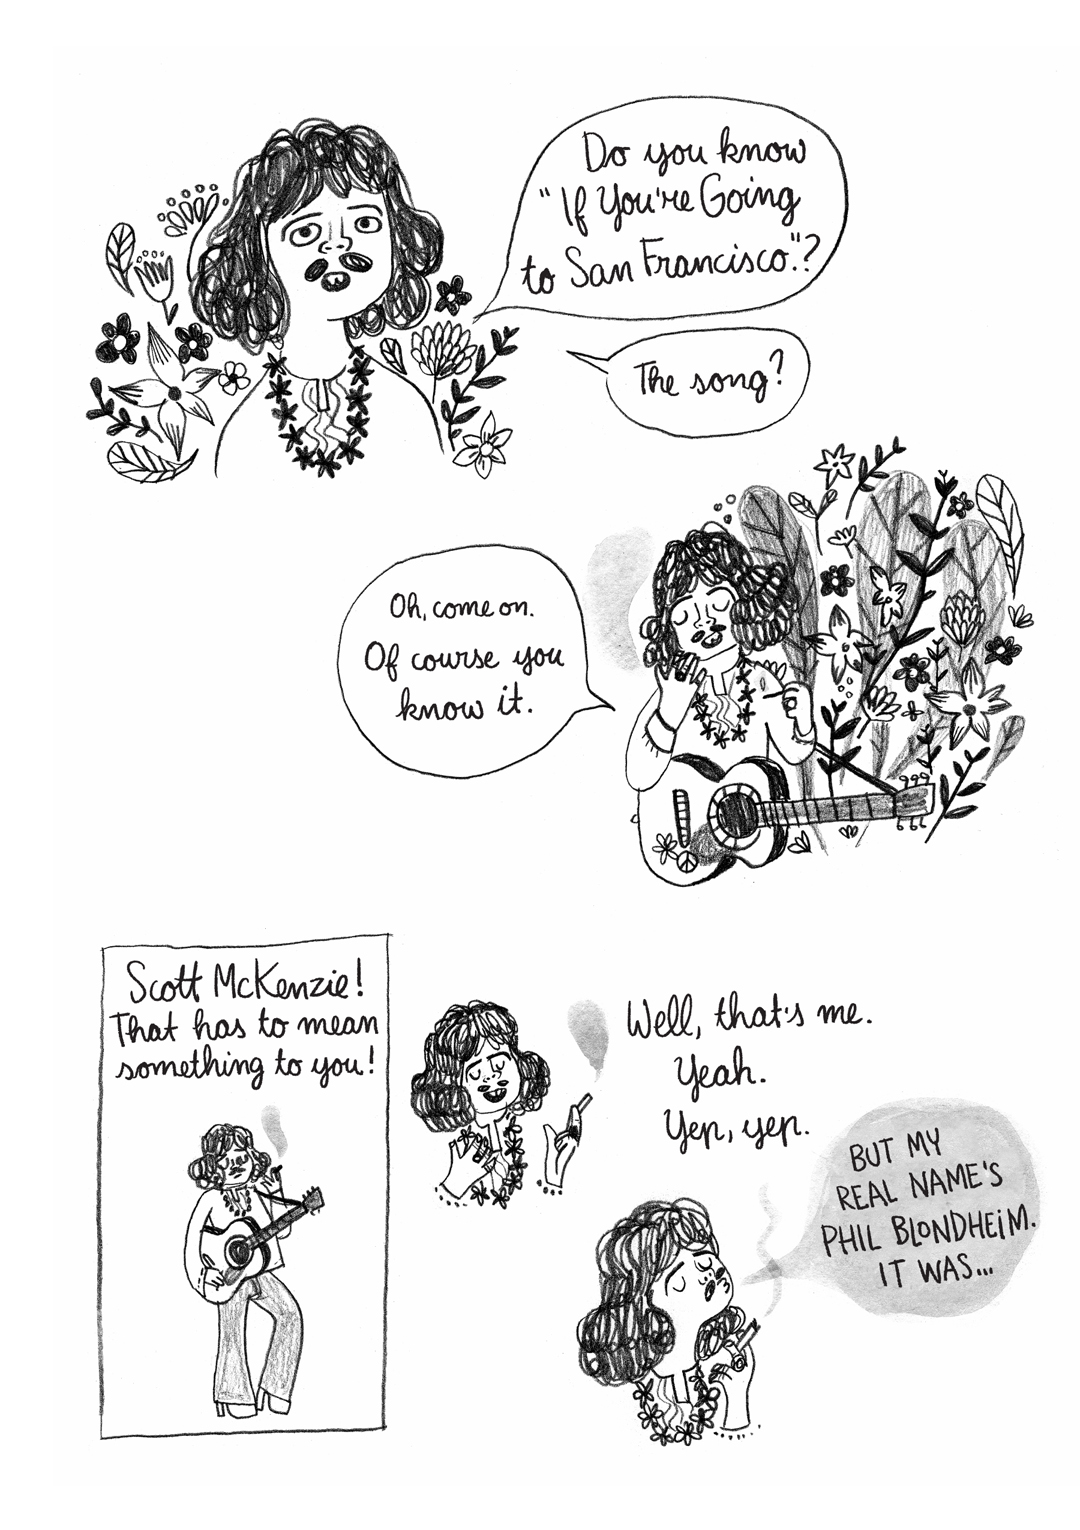 Do you know
"If You're Going
to San Francisco"?
The song?
Oh, come on.
Of course you
know it.
Scott McKenzie!
That has to mean
something to you!
Well, that's me.
Yeah.
Yep, yep.
BUT MY
REAL NAME'S
PHIL BLONDHEIM.
IT WAS...